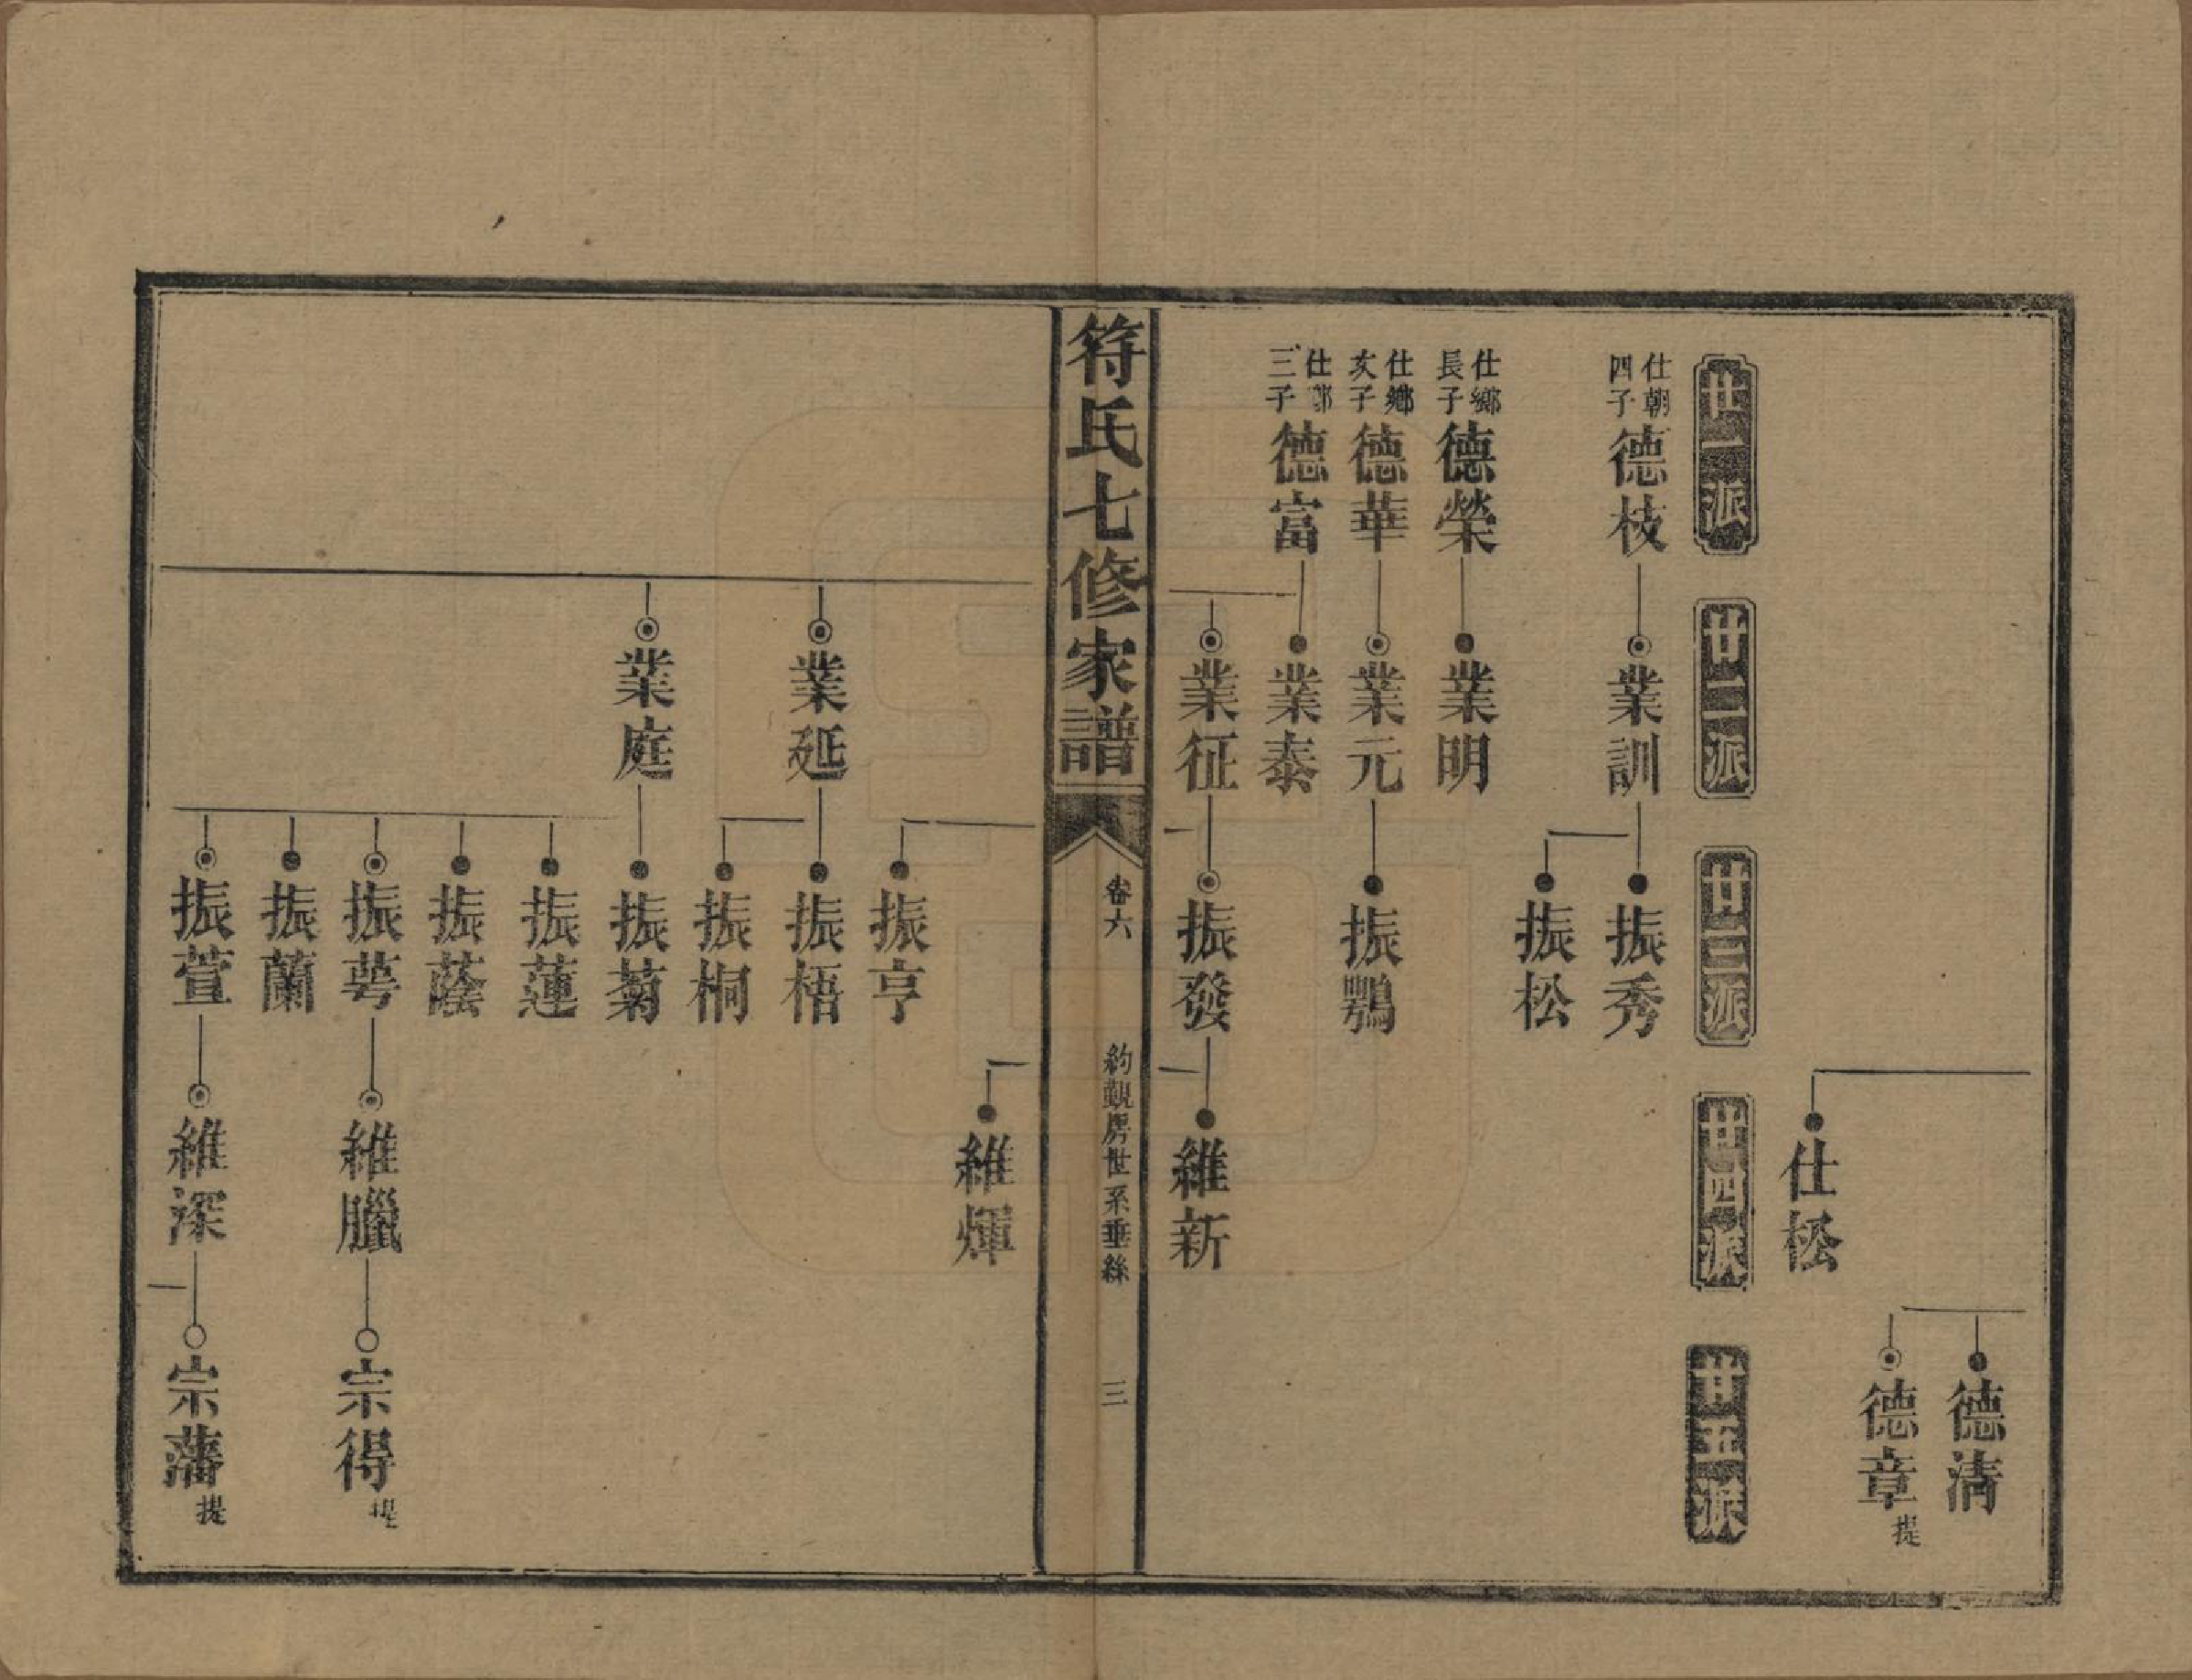 德清
德章提
仕松
廿一派
廿二派
廿三派
廿四派
廿五派
仕朝四子德枝
業訓
振秀
振松
仕鄉長子德榮
業明
仕鄉次子德華
業元
振鶚
仕鄉三子德富
業泰
業征
振發
維新
符氏七修家譜
卷六
約觀房世系垂絲
三
維煇
振亨
業延
振梧
振桐
業庭
振菊
振蓮
振蔭
振萼
維臘
宗得提
振蘭
振萱
維深
宗藩提